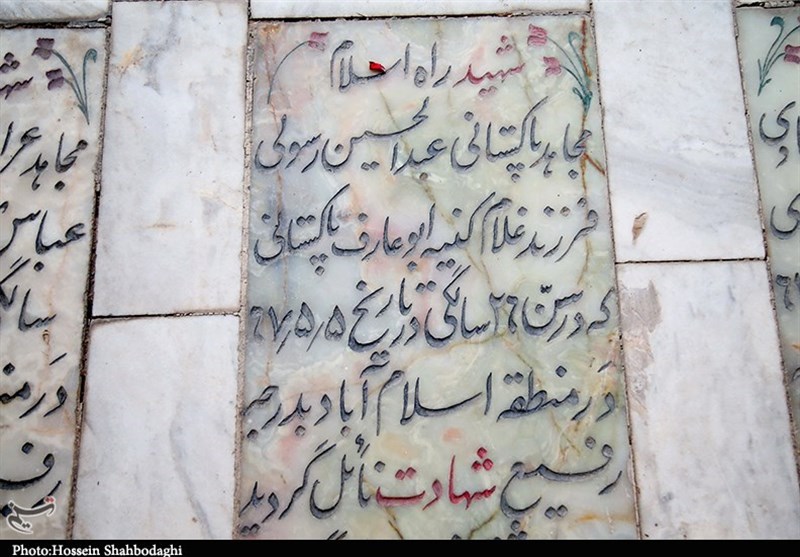 شهید راه اسلام
مجاهد پاکستانی عبدالحسین رسولی
فرزند غلام کنیه ابوعارف پاکستانی
که در سن ۲۶ سالگی در تاریخ ۶۷٫۵٫۵
در منطقه اسلام آباد بدرجه
رفیع شهادت نائل گردید
مجاهد
عباس
سالگ
در من
رفی
Photo:Hossein Shahbodaghi